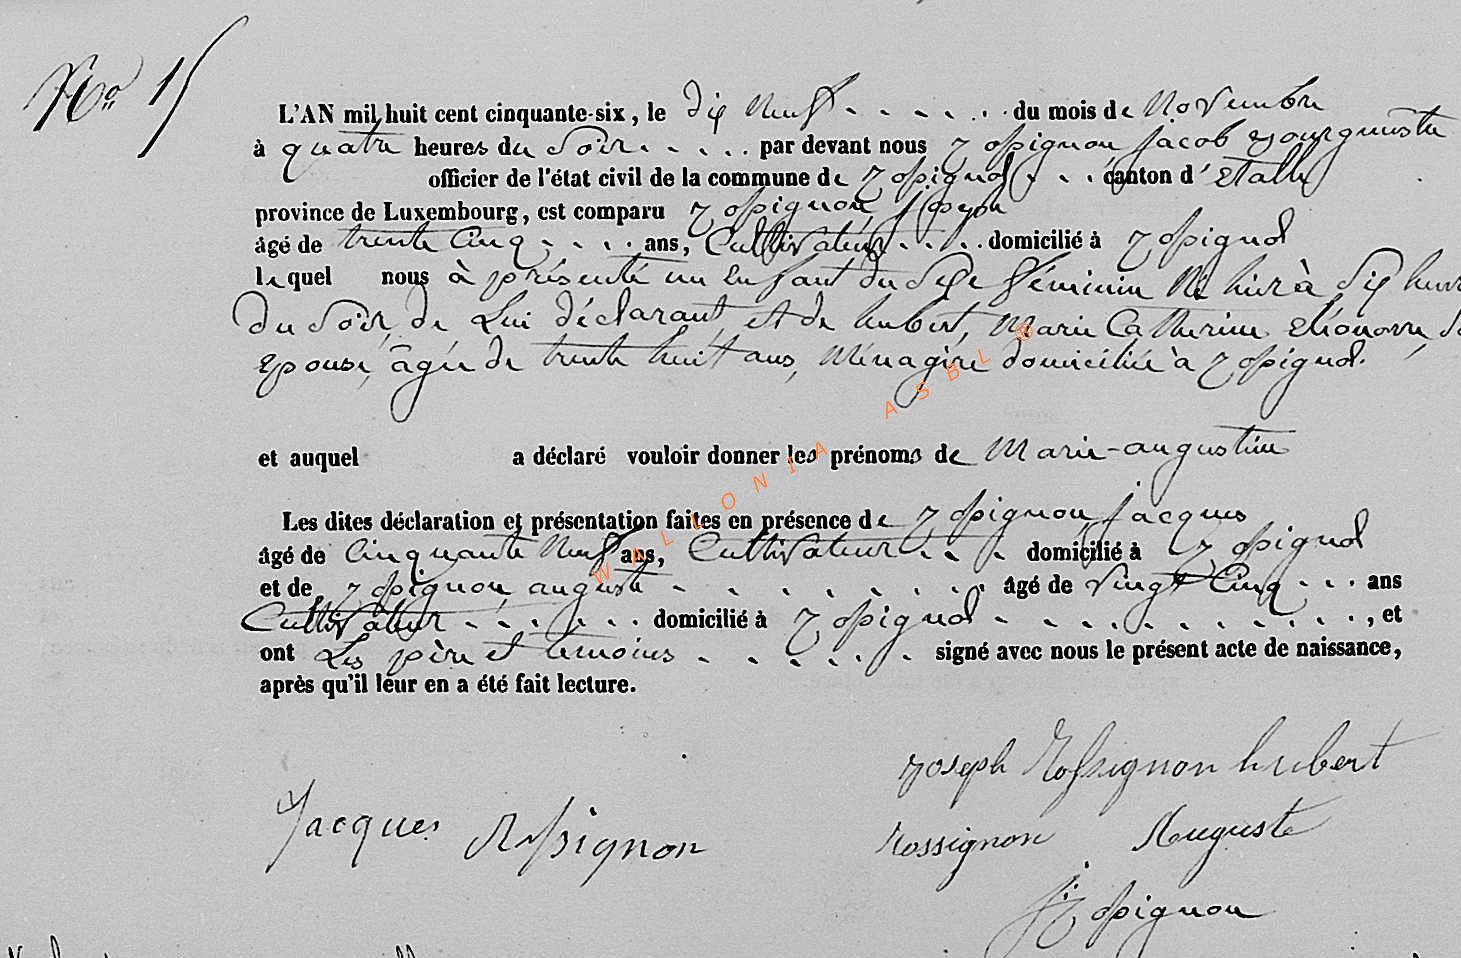 No 15
L'AN mil huit cent cinquante-six, le dix neuf du mois de Novembre
à quatre heures du Soir par devant nous Rossignon Jacob Bourguestre
officier de l'état civil de la commune de Rossignol canton d'Etalle
province de Luxembourg, est comparu Rossignon, Joseph
âgé de trente Cinq ans, Cultivateur domicilié à Rossignol
lequel nous à présenté un Enfant du Sexe féminin Né hier à Six heures
du Soir, de Lui déclarant, et de hubert, Marie Catherine Eléonore, Son
Epouse, âgée de trente huit ans, Ménagère domiciliée à Rossignol.
et auquel a déclaré vouloir donner les prénoms de Marie-augustine
Les dites déclaration et présentation faites en présence de Rossignon Jacques
âgé de Cinquante Neuf ans, Cultivateur domicilié à Rossignol
et de Rossignon, auguste âgé de vingt Cinq ans
Cultivateur domicilié à Rossignol , et
ont Les père et témoins signé avec nous le présent acte de naissance,
après qu'il leur en a été fait lecture.
Joseph Rossignon hubert
Jacques Rossignon
Rossignon Auguste
J Rossignon
WALLONIA ASBL